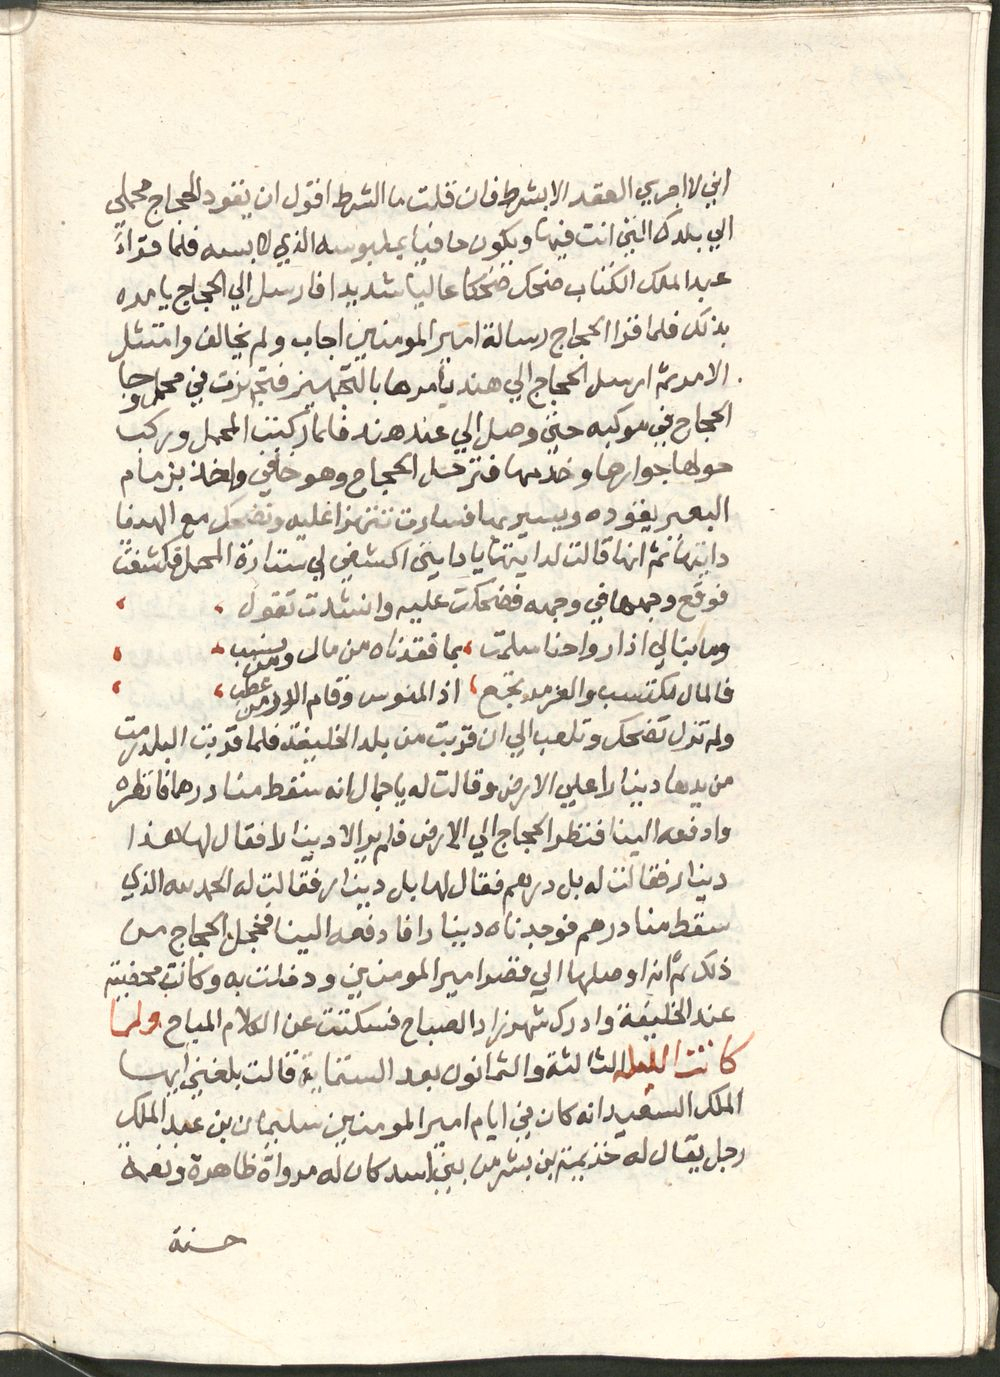 اني لا اجري العقد الا بشرط فان قلت ما الشرط اقول ان يقود الحجاج محملي
الي بلدك التي انت فيها ويكون حافيا بملبوسه الذي لابسه فلما قراء
عبد الملك الكتاب ضحك ضحكا عاليا شديدا فارسل الي الحجاج يامره
بذلك فلما قرا الحجاج رسالة امير المومنين اجاب ولم يخالف وامتثل
الامر ثم ارسل الحجاج الي هند يأمرها بالتجهيز فتجهزت في محمل وجا
الحجاج في موكبه حتي وصل الي عند هند فلما ركبت المحمل وركب
حولها جوارها وخدمها فترجل الحجاج وهو حافي واخذ بزمام
البعير يقوده ويسير بها فصارت تتهزا عليه وتضحك مع الهيفا
دايتها ثم انها قالت لدايتها يا دايتي اكشفي لي ستارة المحمل فكشفت
فوقع وجهها في وجهه فضحكت عليه وانشدت تقول
وما نبالي اذا رواحنا سلمت بما فقدناه من مال ومن نسب
فالمال مكتسب والعز مرتجع اذ النفوس وقام الله من عطب
ولم تزل تضحك وتلعب الي ان قربت من بلد الخليفة فلما قربت البلد رمت
من يدها دينارا علي الارض وقالت له يا جمال انه سقط منا درهما فانظره
وادفعه الينا فنظر الحجاج الي الارض فلم ير الا دينارا فقال لها هذا
دينار فقالت له بل درهم فقال لها بل دينار فقالت له الحمد لله الذي
سقط منا درهم فوجدناه دينارا فادفعه الينا فخجل الحجاج من
ذلك ثم انه اوصلها الي قصر امير المومنين ودخلت به وكانت محضية
عند الخليفة وادرك شهرزاد الصباح فسكتت عن الكلام المباح ولما
كانت الليلة الثالثة والثمانون بعد الستماية قالت بلغني ايها
الملك السعيد انه كان في ايام امير المومنين سليمان بن عبد الملك
رجل يقال له خذيمة بن بشر من بني اسد كان له مرواة ظاهرة ونعمة
حسنة